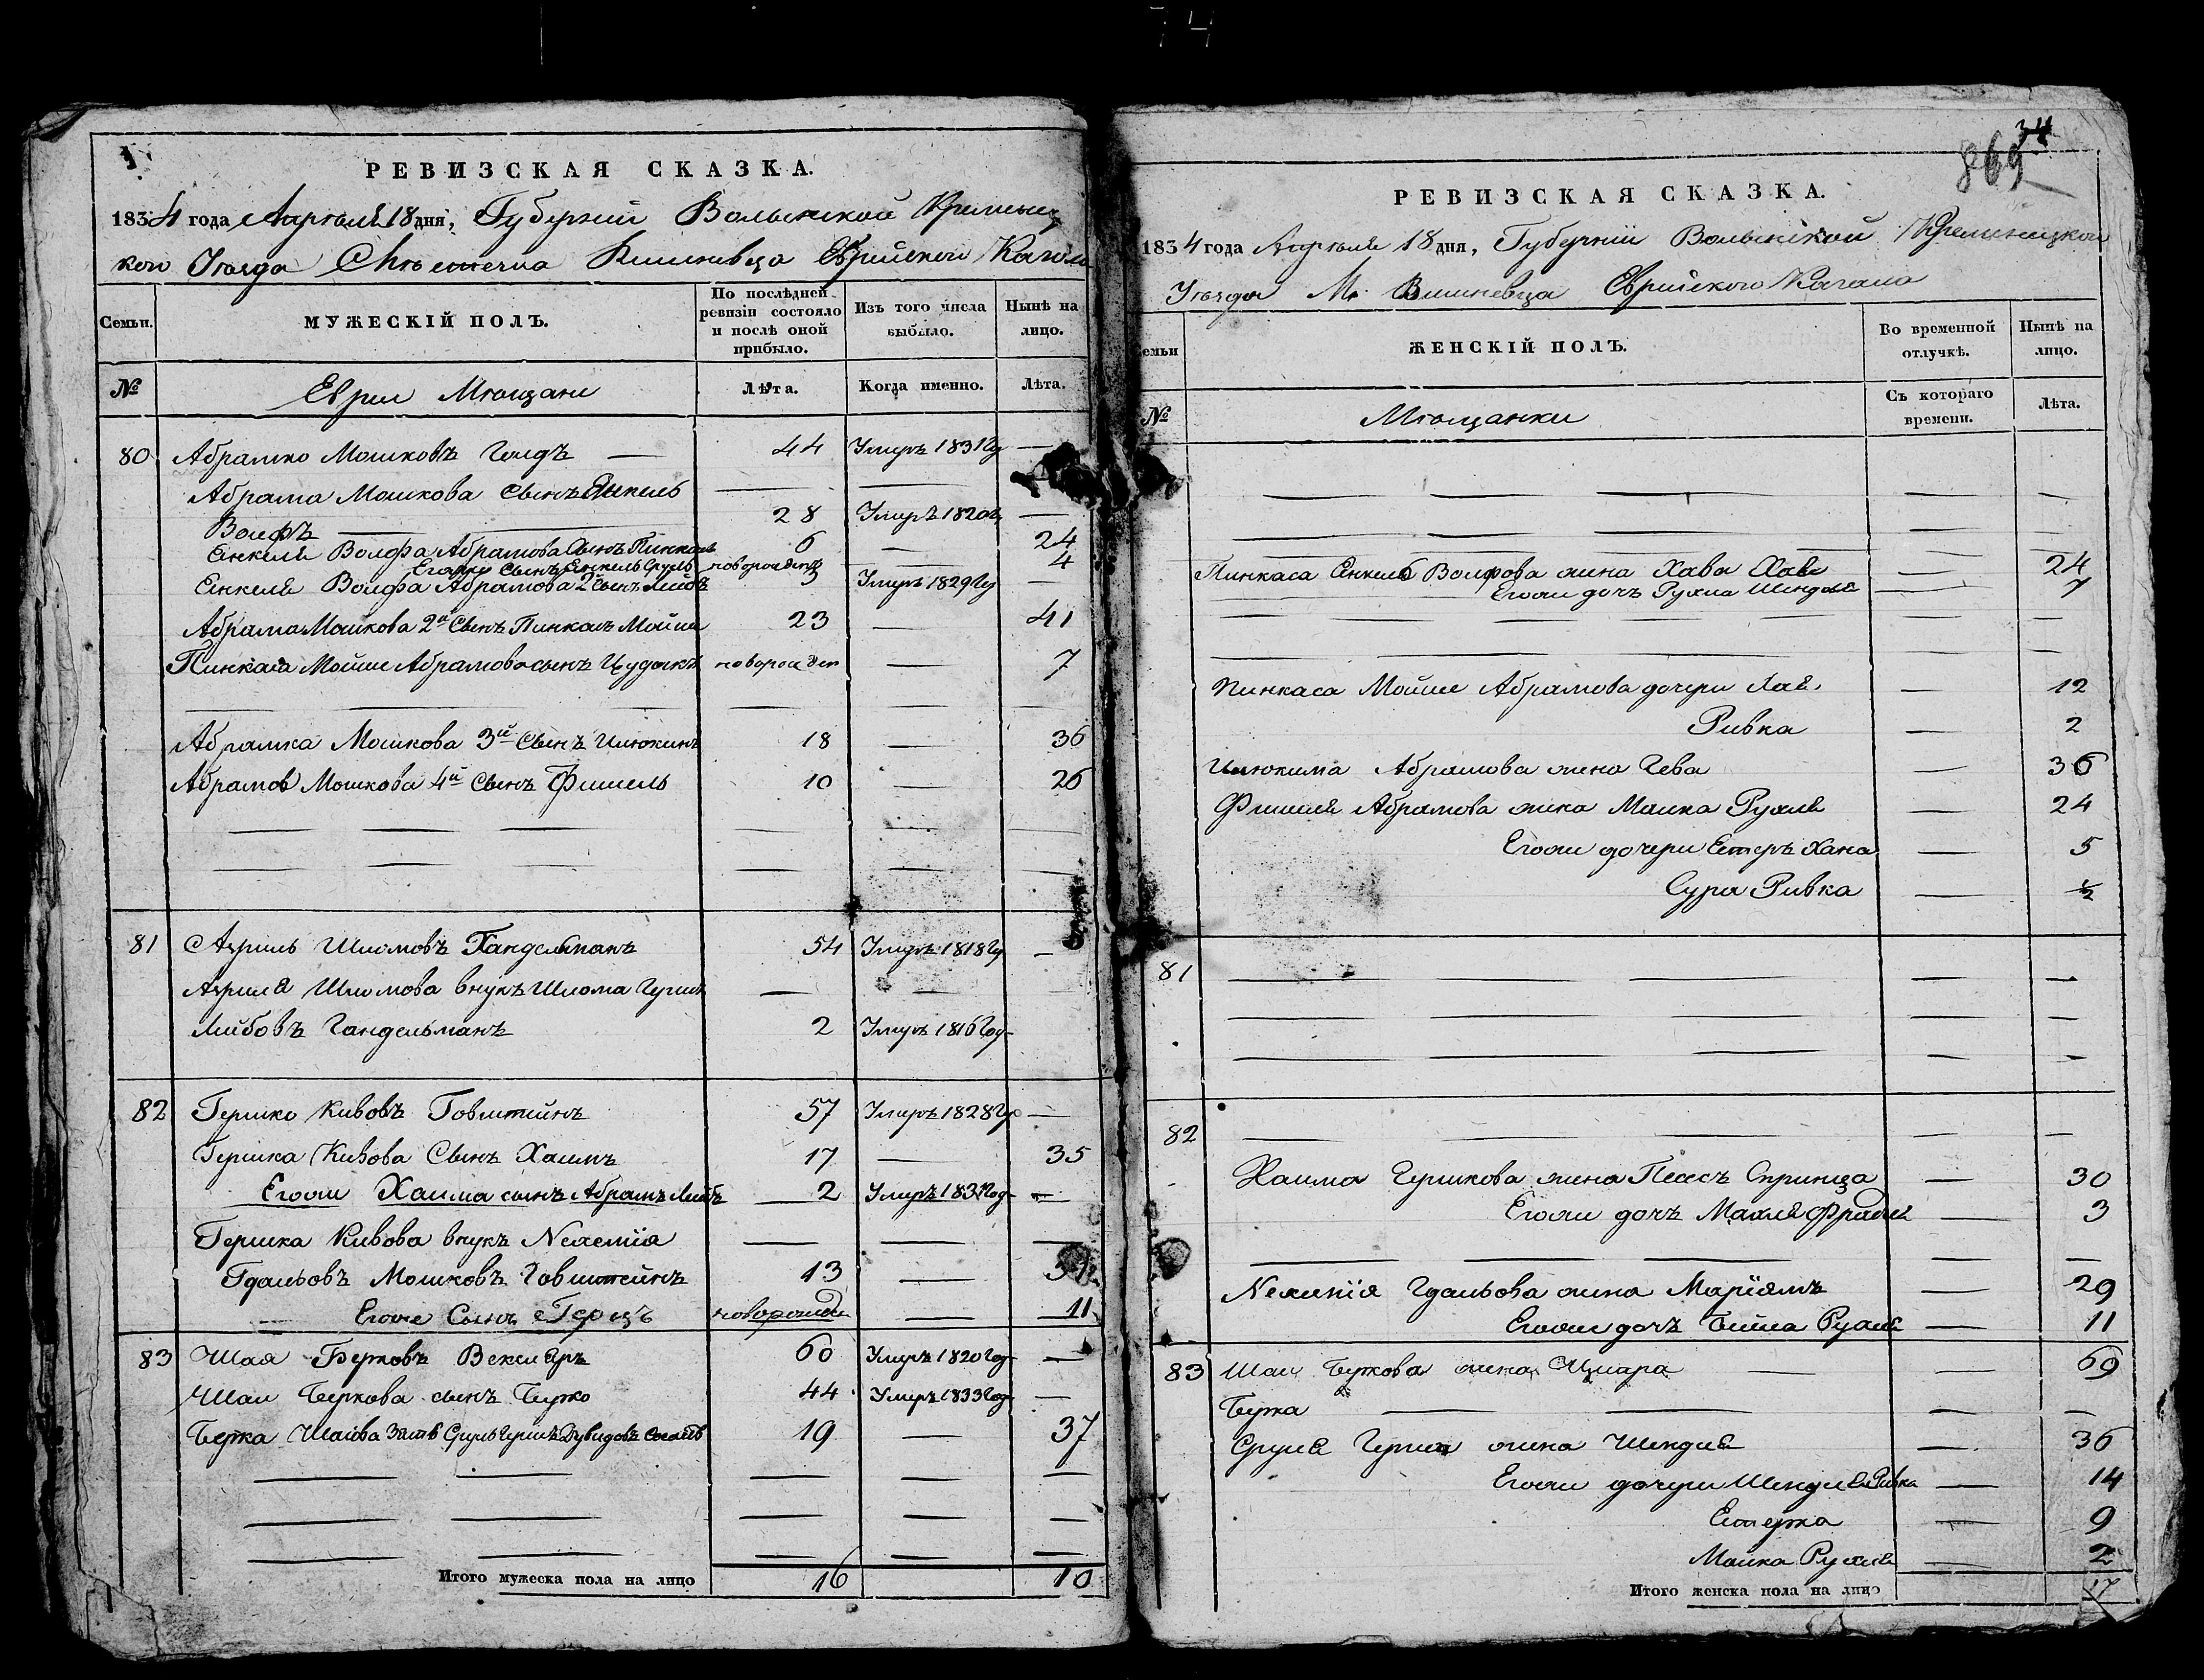 74
РЕВИЗСКАЯ СКАЗКА.
1834 года Апреля 18 дня, Губернии Волынской Кременец
кого Уезда Местечка Вишневца Еврейского Кагала
Семьи.
МУЖЕСКІЙ ПОЛЪ.
По послѣдней ревизіи состояло и послѣ оной прибыло.
Изъ того числа выбыло.
Нынѣ на лицо.
№
Евреи Мѣщане
Лѣта.
Когда именно.
Лѣта.
80 Абрамко Мошковъ — 44 Умеръ 1831 Го —
Абрама Мошкова Сынъ Янкель — —
Волфъ — 28 Умеръ 1820 —
Енкеля Волфа Абрамова Сынъ Пинкасъ 6 — 24
Егоже сынъ Янкель Сруль новорожден — 4
Енкеля Волфа Абрамова 2 Сынъ Лейбъ 3 Умеръ 1829 Го —
Абрама Мошкова 2й Сынъ Пинкасъ Мойше 23 — 41
Пинкаса Мойше Абрамова сынъ новорожден — 7
— — — — — —
Абрамка Мошкова 3й Сынъ 18 — 36
Абрамов Мошкова 4й Сынъ Фишель 10 — 26
— — — — — —
— — — — — —
81 Азриль Шлиомовъ Гандельманъ 54 Умеръ 1818 Го —
Азриля Шлиомова внукъ Шлиома Гершъ — —
Лейбовъ Гандельманъ 2 Умеръ 1816 Год
82 Гершко Кивовъ Говштейнъ 57 Умеръ 1828 Го —
Гершка Кивова Сынъ Хаимъ 17 — 35
Егоже Хаима сынъ Абрамъ Лейбъ 2 Умеръ 1831 Год —
Гершка Кивова внукъ Nехемiя — — —
Гдальовъ Мошковъ Говштейнъ 13 — 31
Егоже Сынъ Герцъ новорожден — 11
83 Шая Берковъ Векслеръ 60 Умеръ 1820 Год —
Шаи Беркова сынъ Берко 44 Умеръ 1833 Год —
Берка Шаiова Зять Сруль Гершъ Дувидовъ 19 — 37
— — — — —
— — — — —
— — — — —
Итого мужеска пола на лицо 16 10
34
869
РЕВИЗСКАЯ СКАЗКА.
1834 года Апреля 18 дня, Губернiи Волынской Кременецкого
Уезда М. Вишневца Еврейского Кагала
Семьи
ЖЕНСКІЙ ПОЛЪ.
Во временной отлучкѣ.
Нынѣ на лицо.
№
Мѣщанки
Съ котораго времени.
Лѣта.
— — — — —
— — — — —
— — — — —
Пинкаса Енкель Волфова жена Хава — 24
Егоже дочь Рухля Шендля — 7
— — — — —
— — — — —
Пинкаса Мойше Абрамова дочери Хая — 12
Ривка — 2
Абрамова жена — 36
Фишеля Абрамова жена Малка Рухля — 24
Егоже дочери Естеръ Хана — 5
Сура Ривка — ½
81 — — — — —
— — — — —
— — — — —
82 — — — — —
Хаима Гершкова жена Песесъ Спринца — 30
Егоже дочь Махля Фрадля — 3
— — — — —
Nехемiя Гдальова жена Марiямъ — 29
Егоже дочь Бейла Рухля — 11
83 Шаи Беркова жена — — 69
Берка — — — —
Сруля Герша жена Шендля — 36
Егоже дочери Шендля Ривка — 14
Естерка — 9
Малка Рухля — 2
Итого женска пола на лицо 17